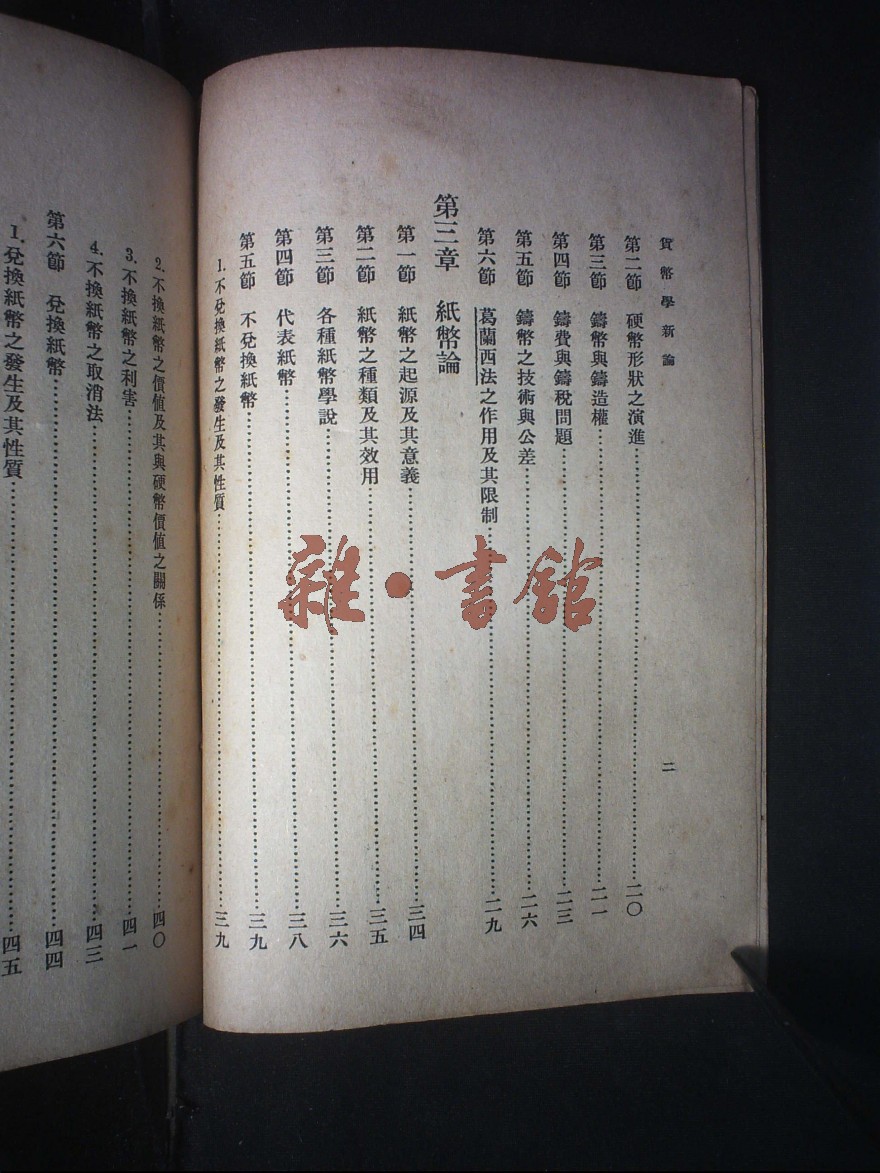 貨幣學新論
二
第二節 硬幣形狀之演進……二〇
第三節 鑄幣與鑄造權……二一
第四節 鑄費與鑄稅問題……二三
第五節 鑄幣之技術與公差……二六
第六節 葛蘭西法之作用及其限制……二九
第三章 紙幣論
第一節 紙幣之起源及其意義……三四
第二節 紙幣之種類及其效用……三五
第三節 各種紙幣學說……三六
第四節 代表紙幣……三八
第五節 不兌換紙幣……三九
1.不兌換紙幣之發生及其性質……三九
2.不換紙幣之價値及其與硬幣價値之關係……四〇
3.不換紙幣之利害……四一
4.不換紙幣之取消法……四三
第六節 兌換紙幣……四四
1.兌換紙幣之發生及其性質……四五
雜·書館